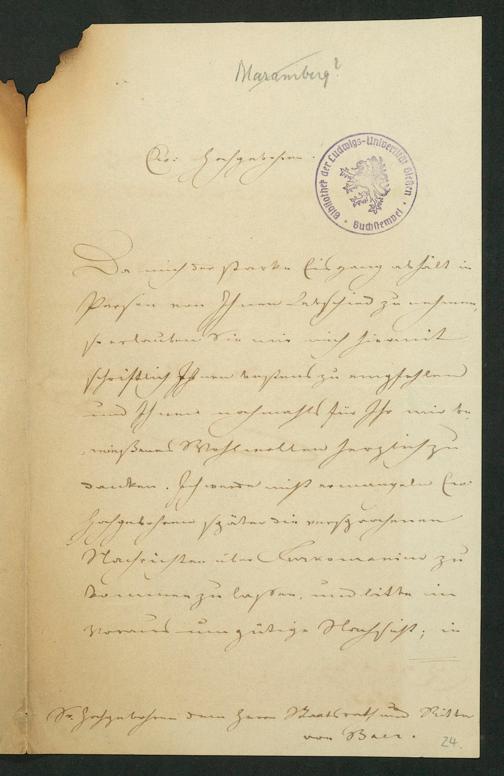 Maramberg?
Ew: Hochgebohren.
Bibliothek der Ludwigs-Universität Gießen
Buchstempel
Da mich der starke Eisgang abhält in
Person von Ihnen Abschied zu nehmen,
so erlauben Sie mir mich hiermit
schriftlich Ihnen bestens zu empfehlen
und Ihnen nochmahls für Ihr mir be-
wießenes Wohlwollen herzlich zu
danken. Ich werde nicht ermangeln Ew:
Hochgebohren später die versprochenen
Nachrichten über zu
kommen zu lassen, und bitte im
Voraus um gütige Nachsicht; in
Sr. Hochgebohren dem Herrn Staatsrath und Ritter
von Baer.
24.